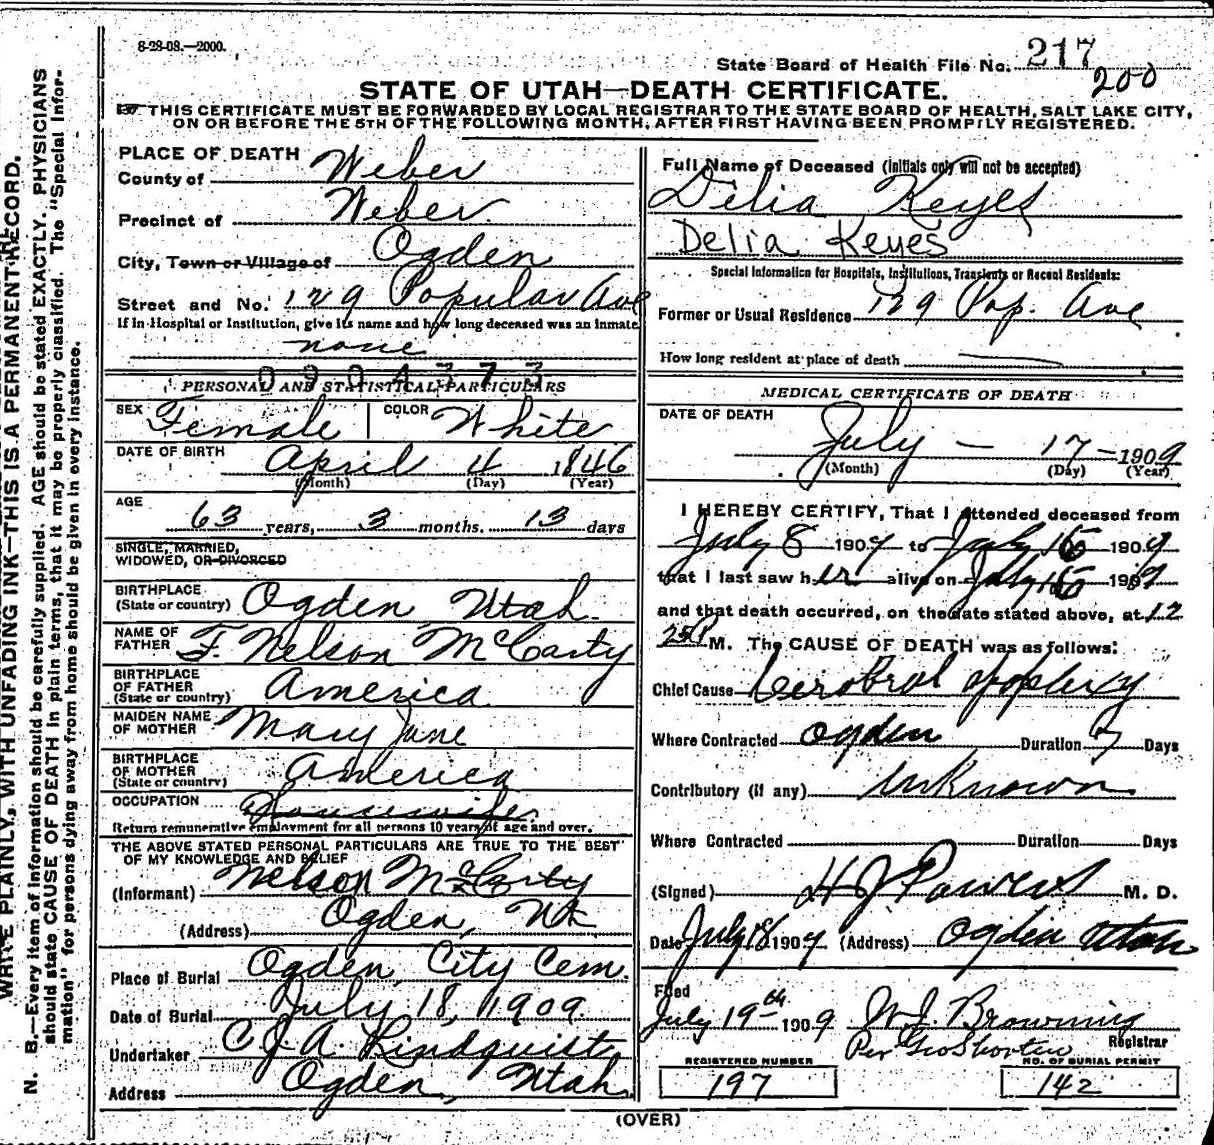 8-28-08.—2000.
State Board of Health File No. 217
200
STATE OF UTAH—DEATH CERTIFICATE.
THIS CERTIFICATE MUST BE FORWARDED BY LOCAL REGISTRAR TO THE STATE BOARD OF HEALTH, SALT LAKE CITY,
ON OR BEFORE THE 5TH OF THE FOLLOWING MONTH, AFTER FIRST HAVING BEEN PROMPTLY REGISTERED.
WRITE PLAINLY, WITH UNFADING INK—THIS IS A PERMANENT RECORD.
N. B.—Every item of information should be carefully supplied. AGE should be stated EXACTLY. PHYSICIANS
should state CAUSE OF DEATH in plain terms, that it may be properly classified. The "Special Infor-
mation" for persons dying away from home should be given in every instance.
PLACE OF DEATH
County of Weber
Precinct of Weber
City, Town or Village of Ogden
Street and No. 129 Popular Ave
If in Hospital or Institution, give its name and how long deceased was an inmate
none
0904373
PERSONAL AND STATISTICAL PARTICULARS
SEX Female COLOR White
DATE OF BIRTH April 4 1846
(Month) (Day) (Year)
AGE
63 years, 3 months. 13 days
SINGLE, MARRIED,
WIDOWED, OR DIVORCED
BIRTHPLACE
(State or country) Ogden Utah.
NAME OF
FATHER F. Nelson McCarty
BIRTHPLACE
OF FATHER
(State or country) America
MAIDEN NAME
OF MOTHER Mary Jane
BIRTHPLACE
OF MOTHER
(State or country) America
OCCUPATION Housewife
Return remunerative employment for all persons 10 years of age and over.
THE ABOVE STATED PERSONAL PARTICULARS ARE TRUE TO THE BEST
OF MY KNOWLEDGE AND BELIEF
(Informant) Nelson McCarty
(Address) Ogden, Ut
Place of Burial Ogden City Cem.
Date of Burial July 18, 1909.
Undertaker C J.A. Lindquist
Address Ogden, Utah
Full Name of Deceased (Initials only will not be accepted)
Delia Keyes
Delia Keyes
Special Information for Hospitals, Institutions, Transients or Recent Residents:
Former or Usual Residence 129 Pop. Ave
How long resident at place of death
MEDICAL CERTIFICATE OF DEATH
DATE OF DEATH
July — 17 — 1909
(Month) (Day) (Year)
I HEREBY CERTIFY, That I attended deceased from
July 8 1909 to July 16 1909
that I last saw her alive on July 16 1909
and that death occurred, on the date stated above, at 12
25 P M. The CAUSE OF DEATH was as follows:
Chief Cause Cerebral apoplexy
Where Contracted Ogden Duration 7 Days
Contributory (if any) unknown
Where Contracted Duration Days
(Signed) H J Powers M. D.
Date July 18 1909 (Address) Ogden Utah
Filed
July 19th 1909 W.J. Browning
Per Geo Shorten Registrar
REGISTERED NUMBER NO. OF BURIAL PERMIT
197 142
(OVER)